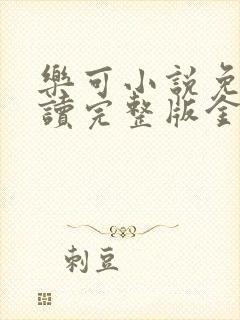 樂可小說免
讀完整版全
刺豆